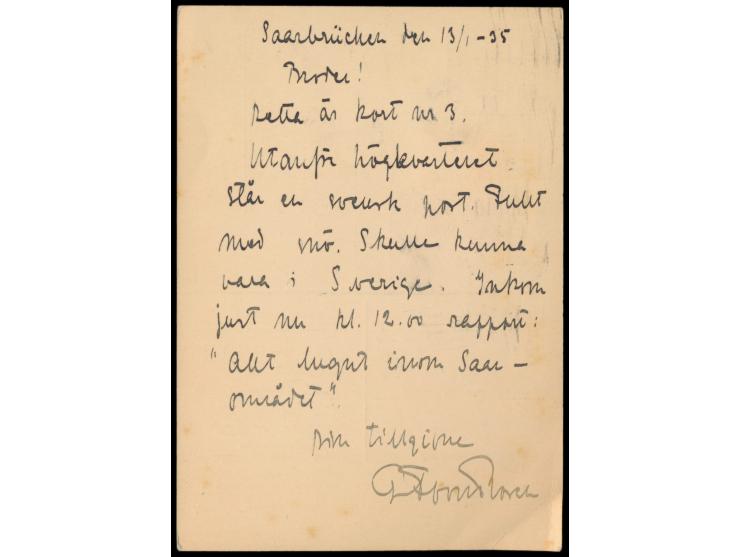 Saarbrücken den 13/1 -35
Broder!
Detta är kort nr 3.
Utanför högkvarteret
står en svensk post. Fullt
med snö. Skulle kunna
vara i Sverige. Inkom
just nu kl. 12.00 rapport:
"Allt lugnt inom Saar-
området".
Din tillgivne